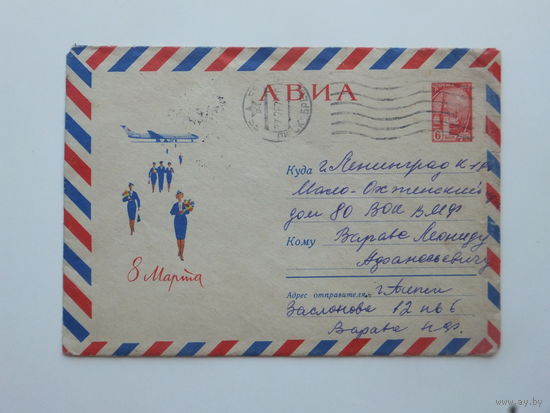 АВИА
6
8 Марта
Куда г. Ленинград К
Мало-Охтенский
дом 80 ВОК ВМФ
Кому Вараве Леониду
Афанасьевичу
Адрес отправителя г.
Заслонова 12 кв 6
Варава Н.Ф.
www.ay.by